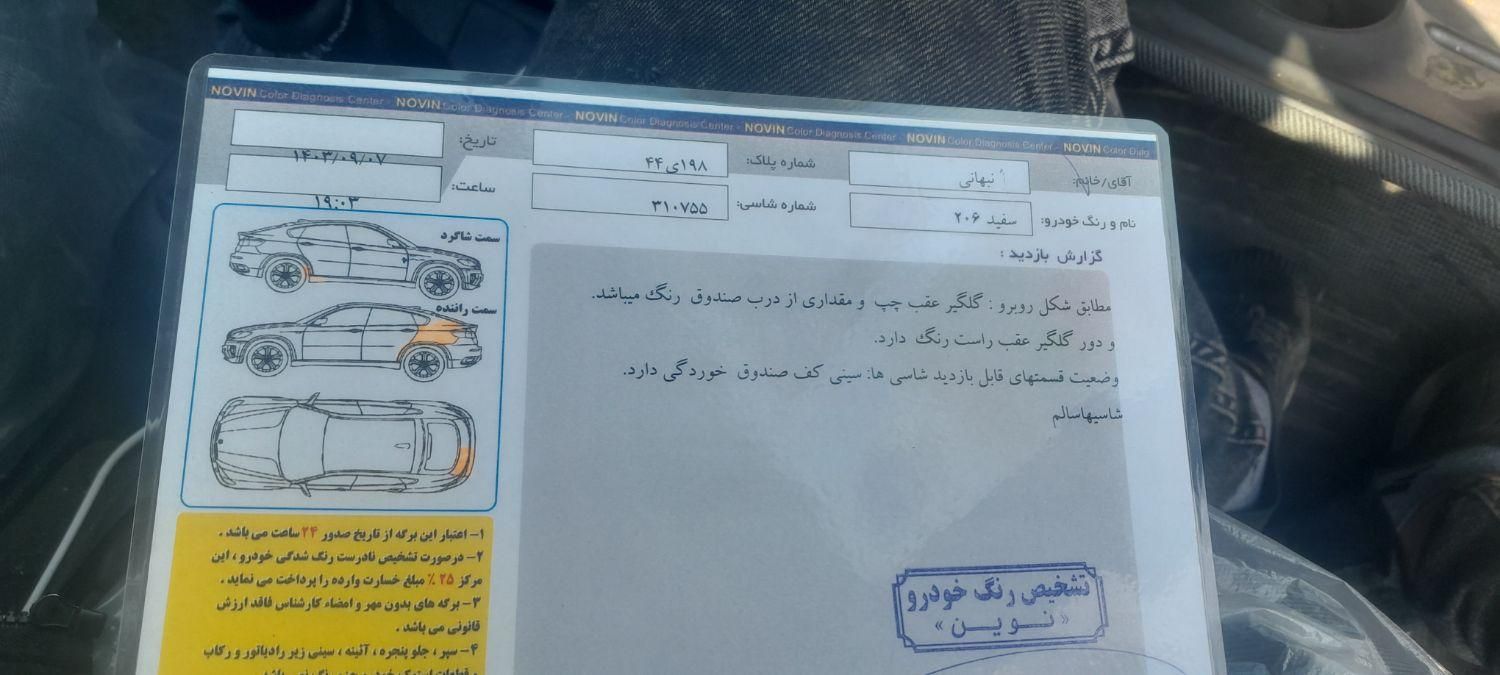 NOVIN Color Diagnosis Center - NOVIN Color Diagnosis Center - NOVIN Color Diagnosis Center - NOVIN Color Diagnosis Center - NOVIN Color Diagnosis Center - NOVIN Color Diag
آقای/خانم: نبهانی
شماره پلاک: ۱۹۸ی۴۴
تاریخ: ۱۴۰۳/۰۹/۰۷
نام و رنگ خودرو: سفید ۲۰۶
شماره شاسی: ۳۱۰۷۵۵
ساعت: ۱۹:۰۳
گزارش بازدید :
مطابق شکل روبرو : گلگیر عقب چپ و مقداری از درب صندوق رنگ میباشد.
و دور گلگیر عقب راست رنگ دارد.
وضعیت قسمتهای قابل بازدید شاسی ها: سینی کف صندوق خوردگی دارد.
شاسیهاسالم
سمت شاگرد
سمت راننده
۱- اعتبار این برگه از تاریخ صدور ۲۴ ساعت می باشد .
۲- درصورت تشخیص نادرست رنگ شدگی خودرو ، این
مرکز ۲۵ ٪ مبلغ خسارت وارده را پرداخت می نماید .
۳- برگه های بدون مهر و امضاء کارشناس فاقد ارزش
قانونی می باشد .
۴- سپر ، جلو پنجره ، آئینه ، سینی زیر رادیاتور و رکاب
تشخیص رنگ خودرو
« نوین »